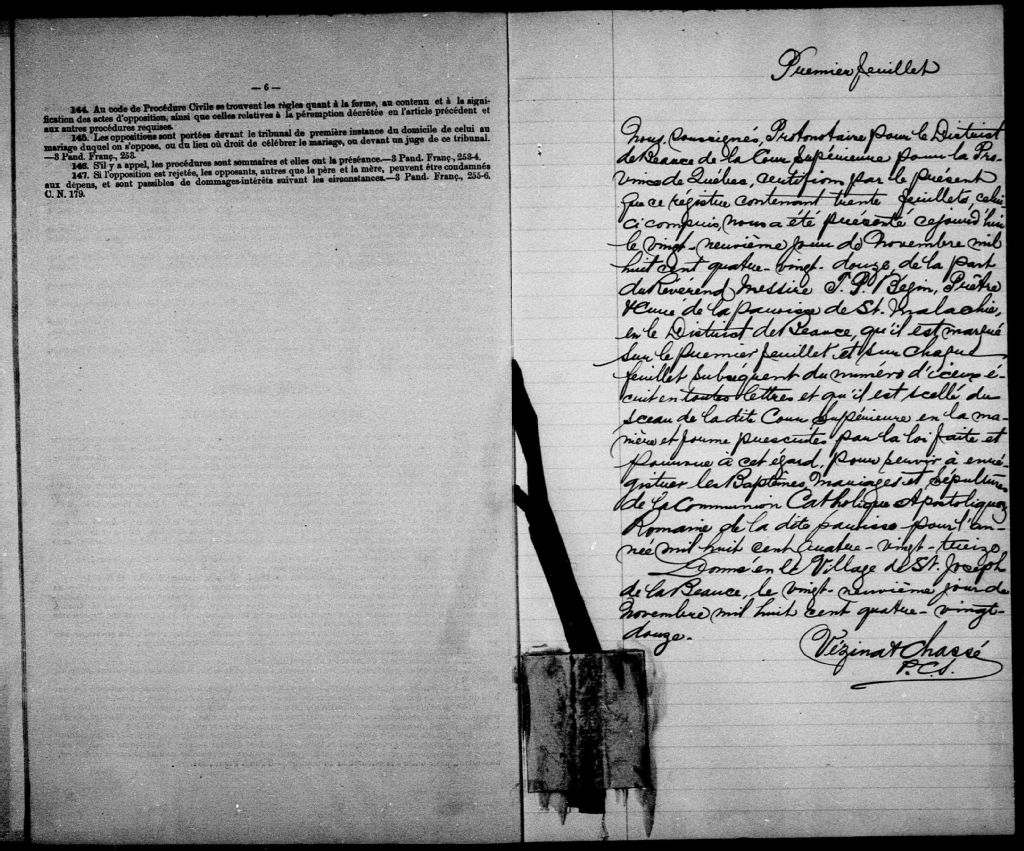 — 6 —
144. Au code de Procédure Civile se trouvent les règles quant à la forme, au contenu et à la signi-
fication des actes d'opposition, ainsi que celles relatives à la péremption décrétée en l'article précédent et
aux autres procédures requises.
145. Les oppositions sont portées devant le tribunal de première instance du domicile de celui au
mariage duquel on s'oppose, ou du lieu où droit de célébrer le mariage, ou devant un juge de ce tribunal.
—3 Pand. Franç., 253.
146. S'il y a appel, les procédures sont sommaires et elles ont la préséance.—3 Pand. Franç., 253-4.
147. Si l'opposition est rejetée, les opposants, autres que le père et la mère, peuvent être condamnés
aux dépens, et sont passibles de dommages-intérêts suivant les circonstances.—3 Pand. Franç., 255-6.
C. N. 179.
Premier feuillet
Nous, soussignés, Protonotaire pour le District
de Beauce de la Cour Supérieure pour la Pro-
vince de Québec, certifions par le présent
que ce régistre contenant trente feuillets, celui-
ci compris, nous a été présenté cejourd'hui
le vingt-neuvième jour de Novembre mil
huit cent quatre-vingt-douze, de la part
du Révérend Messire J. P. Bégin, Prêtre
& Curé de la paroisse de St. Malachie,
en le District de Beauce, qu'il est marqué
sur le premier feuillet et sur chaque
feuillet subséquent du numéro d'iceux é-
crit en toutes lettres et qu'il est scellé du
sceau de la dite Cour Supérieure en la ma-
nière et forme prescrites par la loi faite et
pourvue à cet égard, pour servir à enré-
gistrer les Baptêmes, Mariages et Sépultures
de la Communion Catholique Apostolique
Romaine de la dite paroisse pour l'an-
née mil huit cent quatre-vingt-treize
Donné en le Village de St. Joseph
de la Beauce, le vingt-neuvième jour de
Novembre mil huit cent quatre-vingt-
douze.
Vézina & Chassé
P.C.S.